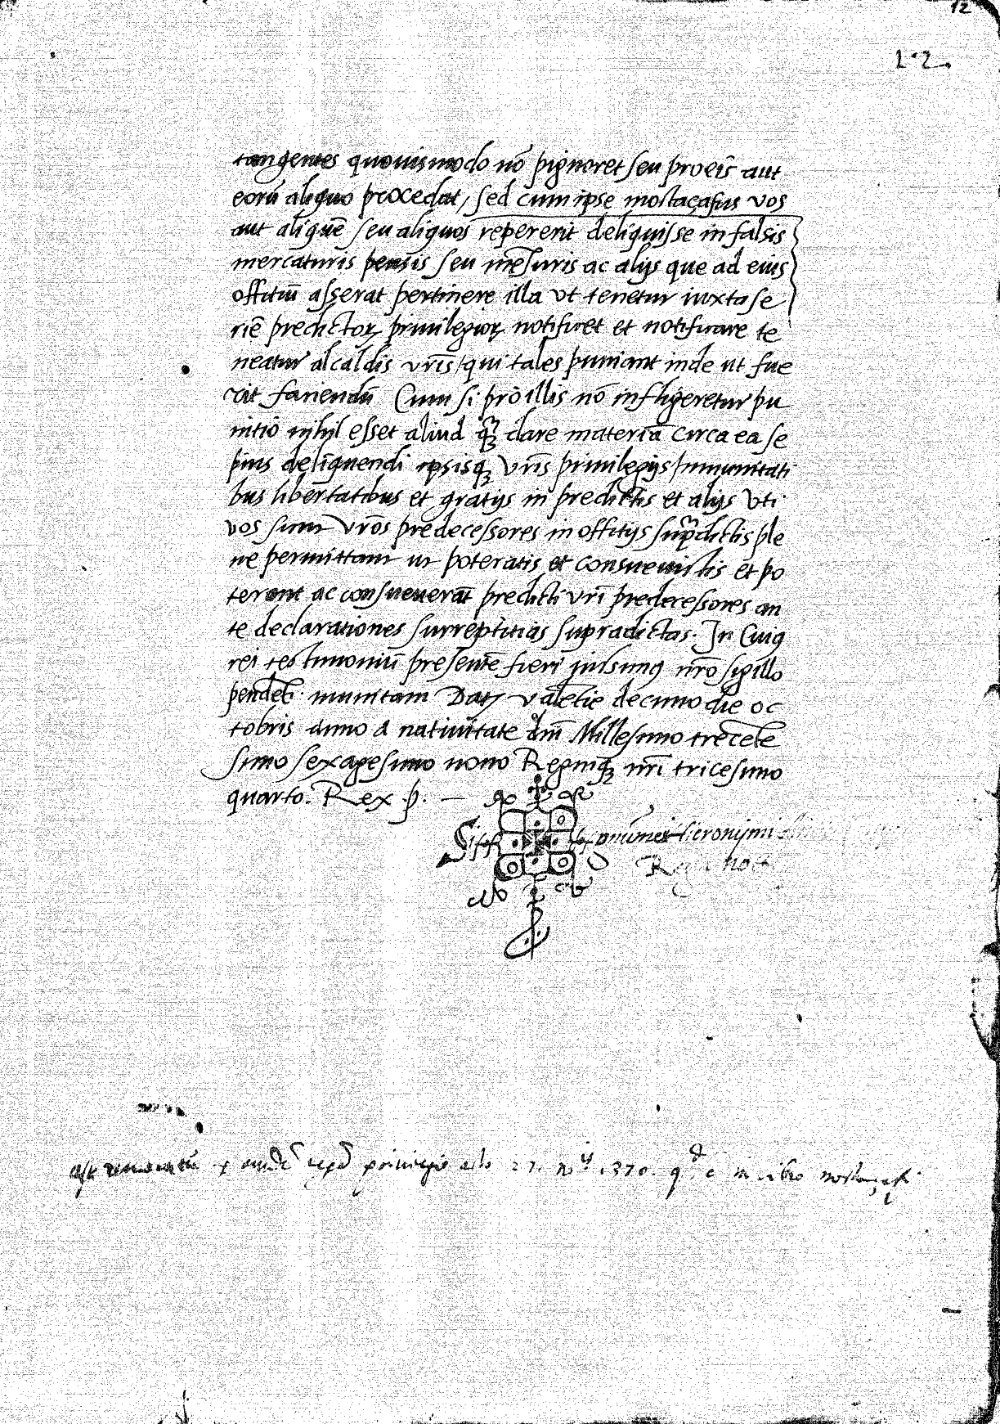 12
22
tangentes quouismodo nō pignoret seu pro eis aut
eorū aliquo procedat, sed cum ipse mostaçafius vos
aut aliquē seu aliquos repererit deliquisse in falsis
mercaturis pensis seu mēsuris ac alijs que ad eius
offitiū asserat pertinere illa vt tenetur iuxta se
riē predictoꝝ priuilegioꝝ notificet et notificare te
neatur alcaldis vr̄is qui tales puniant inde ut fue
rit faciendū Cum si pro illis nō infligeretur pu
nitio nihil esset aliud qꝫ dare materiā circa ea se
pius deliquendi ipsisqꝫ vr̄is priuilegijs inmunitati
bus libertatibus et gratijs in predictis et alijs vti
vos sicut vr̄os predecessores in offitijs supradictis ple
ne permittatur ut poteratis et consueuistis et po
terant ac consueuerāt predicti vr̄i predecessores an
te declarationes surreptitias supradictas. In Cuiꝰ
rei testimoniū presentē fieri iussimꝰ nr̄o sigillo
pendēti munitam Datꝭ valētie decimo die oc
tobris anno a natiuitate dn̄i Millesimo trecēte
simo sexagesimo nono Regniqꝫ nr̄i tricesimo
quarto. Rex .p. —
Sig hieronijmi
Reg not
priuilegio 27 1370 libro